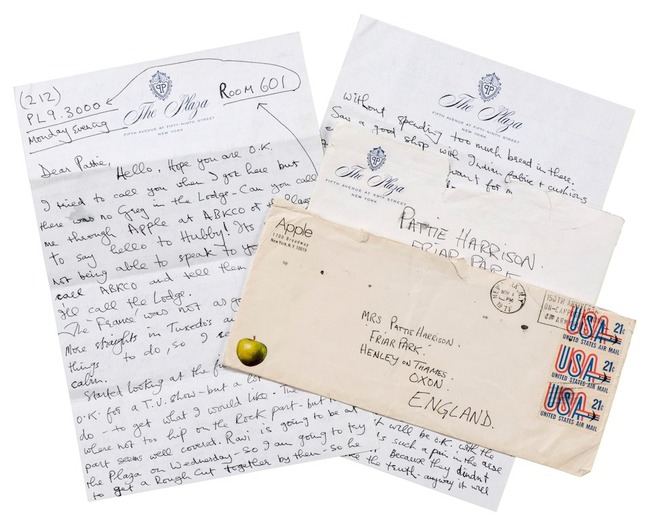 (212)
PL 9.3000
Monday Evening
ROOM 601
The Plaza
FIFTH AVENUE AT FIFTY-NINTH STREET
NEW YORK
Dear Pattie,
Hello, Hope you are O.K.
I tried to call you when I got here but
there was no Grey in the Lodge - Can you call
me through APPLE at ABKCO
to say hello to Hubby! Its
not being able to speak to
call ABKCO and tell them
Ill call the Lodge.
The 'Frames' was not as
More straights in Tuxedos
things to do, so I
calm.
Started looking at the
O.K. for a T.V. show - but a
do - to get what I would like. The
where not too hip on the Rock part - but
part seems well covered. Ravi is going to be at
the Plaza on Wednesday - So I am going to try
to get a Rough Cut together by then - So he
it will be O.K. with the
is such a pain in the arse
Because they
the truth - anyway it will
The Plaza
FIFTH AVENUE AT FIFTY-NINTH STREET
NEW YORK
without spending too much bread in there.
Saw a good shop with Indian fabric + cushions
The Plaza
FIFTH AVENUE AT FIFTY-NINTH STREET
NEW YORK
PATTIE HARRISON.
FRIAR PARK
Apple
1700 Broadway
New York, N.Y. 10019
MRS PATTIE HARRISON.
FRIAR PARK.
HENLEY ON THAMES
OXON.
ENGLAND.
USA 21c
UNITED STATES AIR MAIL
USA 21c
UNITED STATES AIR MAIL
USA 21c
UNITED STATES AIR MAIL